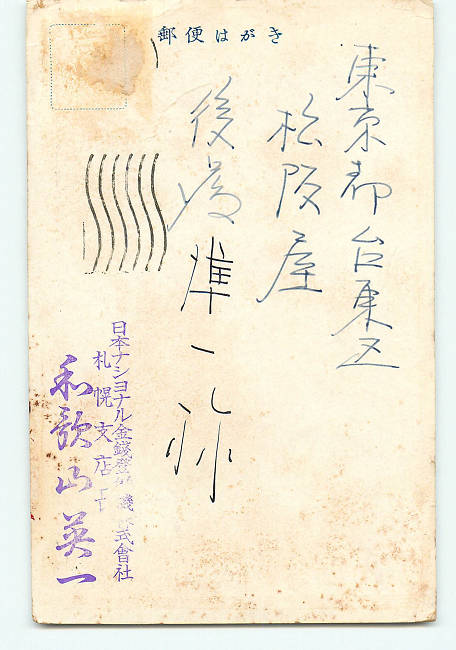 郵便はがき
東京都台東区
松阪屋
後藤 一
日本ナショナル金銭登 機 式會社
札幌支店
和歌山英一